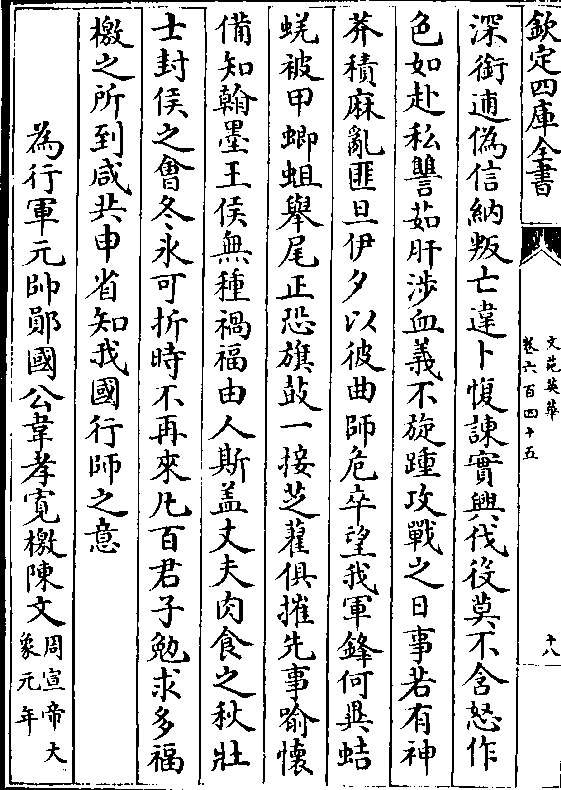 欽定四庫全書
文苑英華
卷六百四十五
十八
深銜逋偽信納叛亡違卜愎諫實興伐役莫不含怒作
色如赴私讐茹肝涉血義不旋踵攻戰之日事若有神
莽積麻亂匪旦伊夕以彼曲師危卒望我軍鋒何異蛣
蜣被甲蝍蛆舉尾正恐旗鼓一接芝蘿俱摧先事喻懷
備知翰墨王侯無種禍福由人斯盖丈夫肉食之秋壯
士封侯之會冬氷可折時不再來凡百君子勉求多福
檄之所到咸共申省知我國行師之意
為行軍元帥鄖國公韋孝寛檄陳文周宣帝大
象元年